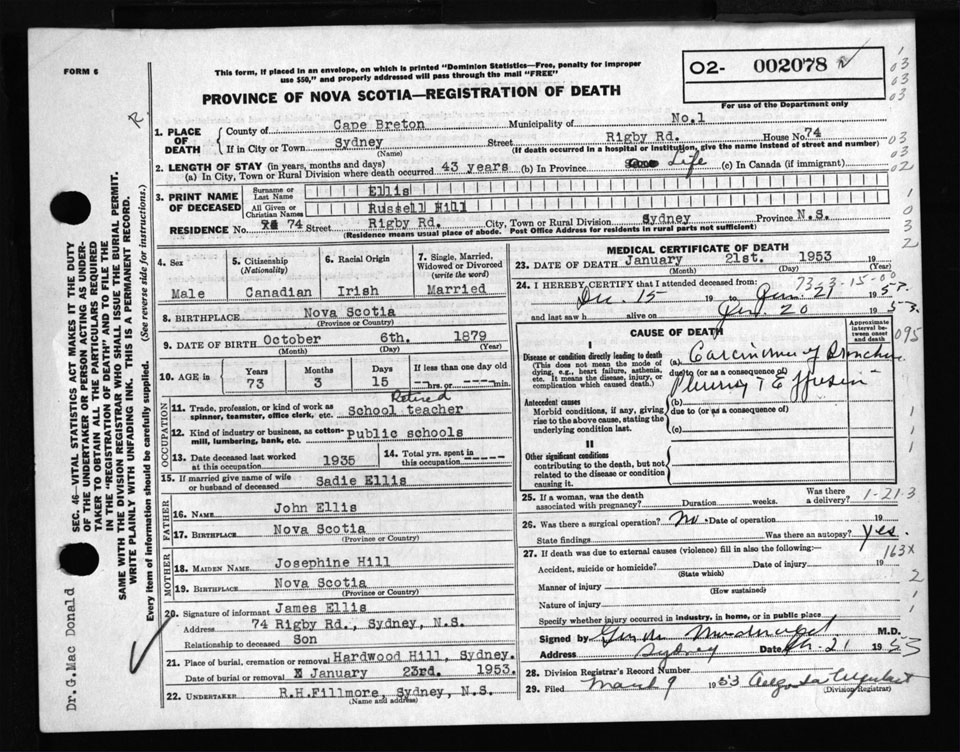 FORM 6
This form, if placed in an envelope, on which is printed "Dominion Statistics—Free, penalty for improper
use $50," and properly addressed will pass through the mail "FREE"
O2- 002078
For use of the Department only
PROVINCE OF NOVA SCOTIA—REGISTRATION OF DEATH
1. PLACE OF DEATH
County of Cape Breton Municipality of No.1
If in City or Town Sydney Street Rigby Rd. House No. 74
(Name) (If death occurred in a hospital or institution, give the name instead of street and number)
2. LENGTH OF STAY (in years, months and days)
(a) In City, Town or Rural Division where death occurred 43 years (b) In Province Life (c) In Canada (if immigrant)
3. PRINT NAME OF DECEASED
Surname or Last Name Ellis
All Given or Christian Names Russell Hill
RESIDENCE No. 74 Street Rigby Rd. City, Town or Rural Division Sydney Province N.S.
(Residence means usual place of abode. Post Office Address for residents in rural parts not sufficient)
4. Sex Male
5. Citizenship (Nationality) Canadian
6. Racial Origin Irish
7. Single, Married, Widowed or Divorced (write the word) Married
8. BIRTHPLACE Nova Scotia
(Province or Country)
9. DATE OF BIRTH October 6th. 1879
(Month) (Day) (Year)
10. AGE in Years 73 Months 3 Days 15 If less than one day hrs. or min.
OCCUPATION
Retired
11. Trade, profession, or kind of work as spinner, teamster, office clerk, etc. School teacher
12. Kind of industry or business, as cotton-mill, lumbering, bank, etc. Public schools
13. Date deceased last worked at this occupation 1935
14. Total yrs. spent in this occupation -----
15. If married give name of wife or husband of deceased Sadie Ellis
FATHER
16. NAME John Ellis
17. BIRTHPLACE Nova Scotia
(Province or Country)
MOTHER
18. MAIDEN NAME Josephine Hill
19. BIRTHPLACE Nova Scotia
(Province or Country)
20. Signature of informant James Ellis
Address 74 Rigby Rd., Sydney, N.S.
Relationship to deceased Son
21. Place of burial, cremation or removal Hardwood Hill, Sydney.
Date of burial or removal January 23rd. 1953.
22. UNDERTAKER R.H.Fillmore, Sydney, N.S.
(Name and address)
MEDICAL CERTIFICATE OF DEATH
23. DATE OF DEATH January 21st. 1953 19
(Month) (Day) (Year)
24. I HEREBY CERTIFY that I attended deceased from: 73-3-15-00
Dec. 15 19 to Jan. 21 19
and last saw h alive on Jan. 20 1953.
CAUSE OF DEATH
Approximate interval between onset and death
095
I
Disease or condition directly leading to death
(This does not mean the mode of dying, e.g., heart failure, asthenia, etc. It means the disease, injury, or complication which caused death.)
(a) Carcinoma of Bronchus
due to (or as a consequence of)
Pleurisy Effusion
(b)
Antecedent causes
Morbid conditions, if any, giving rise to the above cause, stating the underlying condition last.
due to (or as a consequence of)
(c)
II
Other significant conditions
contributing to the death, but not related to the disease or condition causing it.
25. If a woman, was the death associated with pregnancy? Duration weeks. Was there a delivery? 1-21-3
26. Was there a surgical operation? No. Date of operation 19
State findings Was there an autopsy? Yes.
163x
27. If death was due to external causes (violence) fill in also the following:—
Accident, suicide or homicide? Date of injury 19
(State which)
Manner of injury
(How sustained)
Nature of injury
Specify whether injury occurred in industry, in home, or in public place
Signed by M.D.
Address Sydney Date 21 1953
28. Division Registrar's Record Number
29. Filed March 9 1953
(Division Registrar)
SEC. 46—VITAL STATISTICS ACT MAKES IT THE DUTY
OF THE UNDERTAKER OR PERSON ACTING AS UNDER-
TAKER TO OBTAIN ALL THE PARTICULARS REQUIRED
IN THE "REGISTRATION OF DEATH" AND TO FILE THE
SAME WITH THE DIVISION REGISTRAR WHO SHALL ISSUE THE BURIAL PERMIT.
WRITE PLAINLY WITH UNFADING INK. THIS IS A PERMANENT RECORD.
Every item of information should be carefully supplied. (See reverse side for instructions.)
Dr.G.Mac Donald